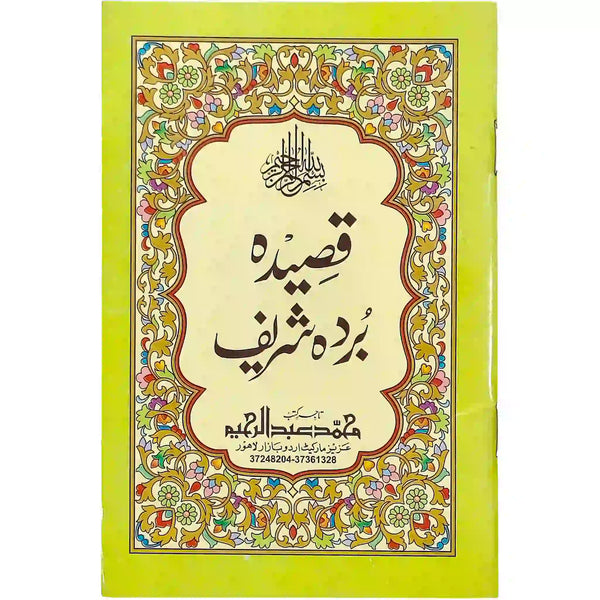 بسم الله الرحمن الرحيم
قصیدہ
بُردہ شریف
تاجر کتب
محمد عبدالرحیم
عزیز مارکیٹ اردو بازار لاہور
37248204-37361328